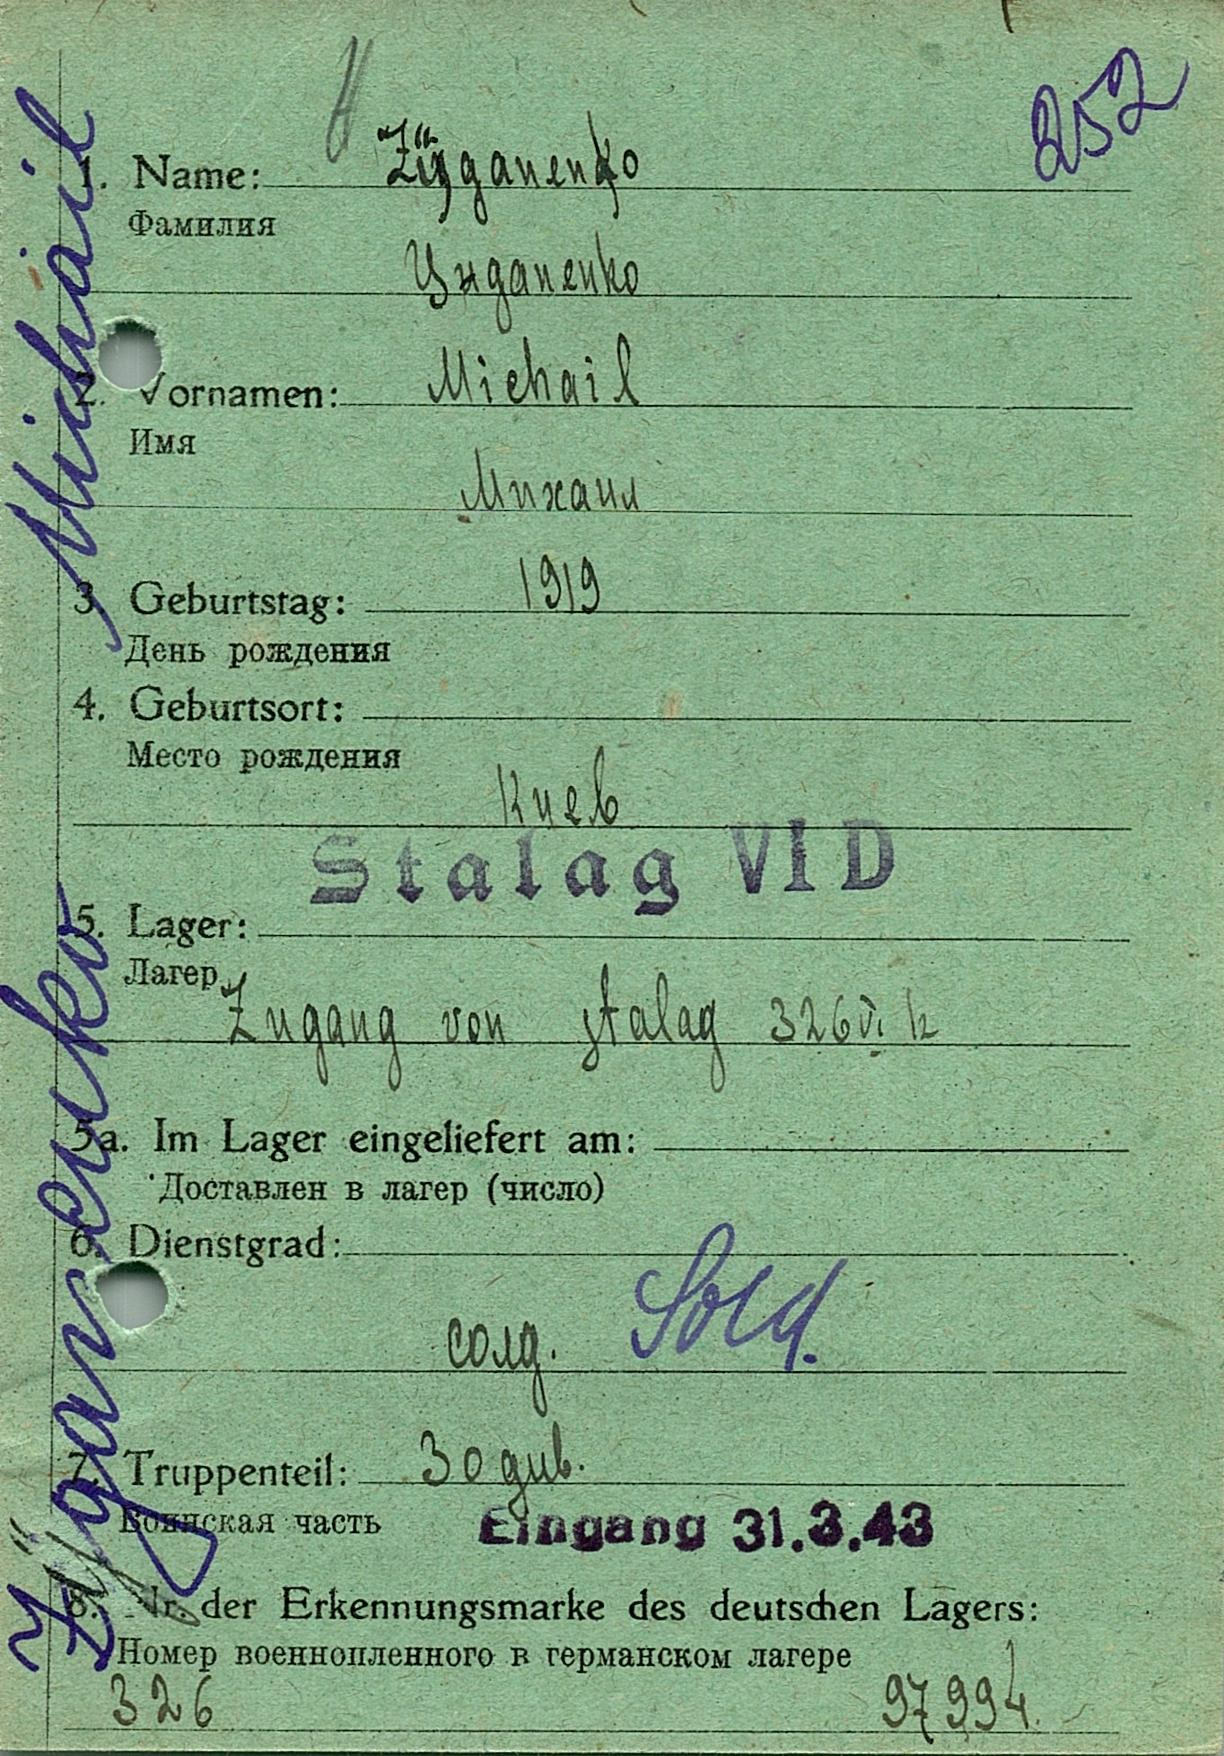 252
1. Name: Zÿganenko
Фамилия
Цыганенко
2. Vornamen: Michail
Имя
Михаил
3. Geburtstag: 1919
День рождения
4. Geburtsort:
Место рождения
Киев
Stalag VI D
5. Lager:
Лагер
Zugang von stalag 326 VI. k
5a. Im Lager eingeliefert am:
Доставлен в лагер (число)
6. Dienstgrad:
солд. Sold.
7. Truppenteil: 30 див.
Воинская часть
Eingang 31.3.43
8. Nr. der Erkennungsmarke des deutschen Lagers:
Номер военнопленного в германском лагере
326 97994.
Zÿganenko Michail